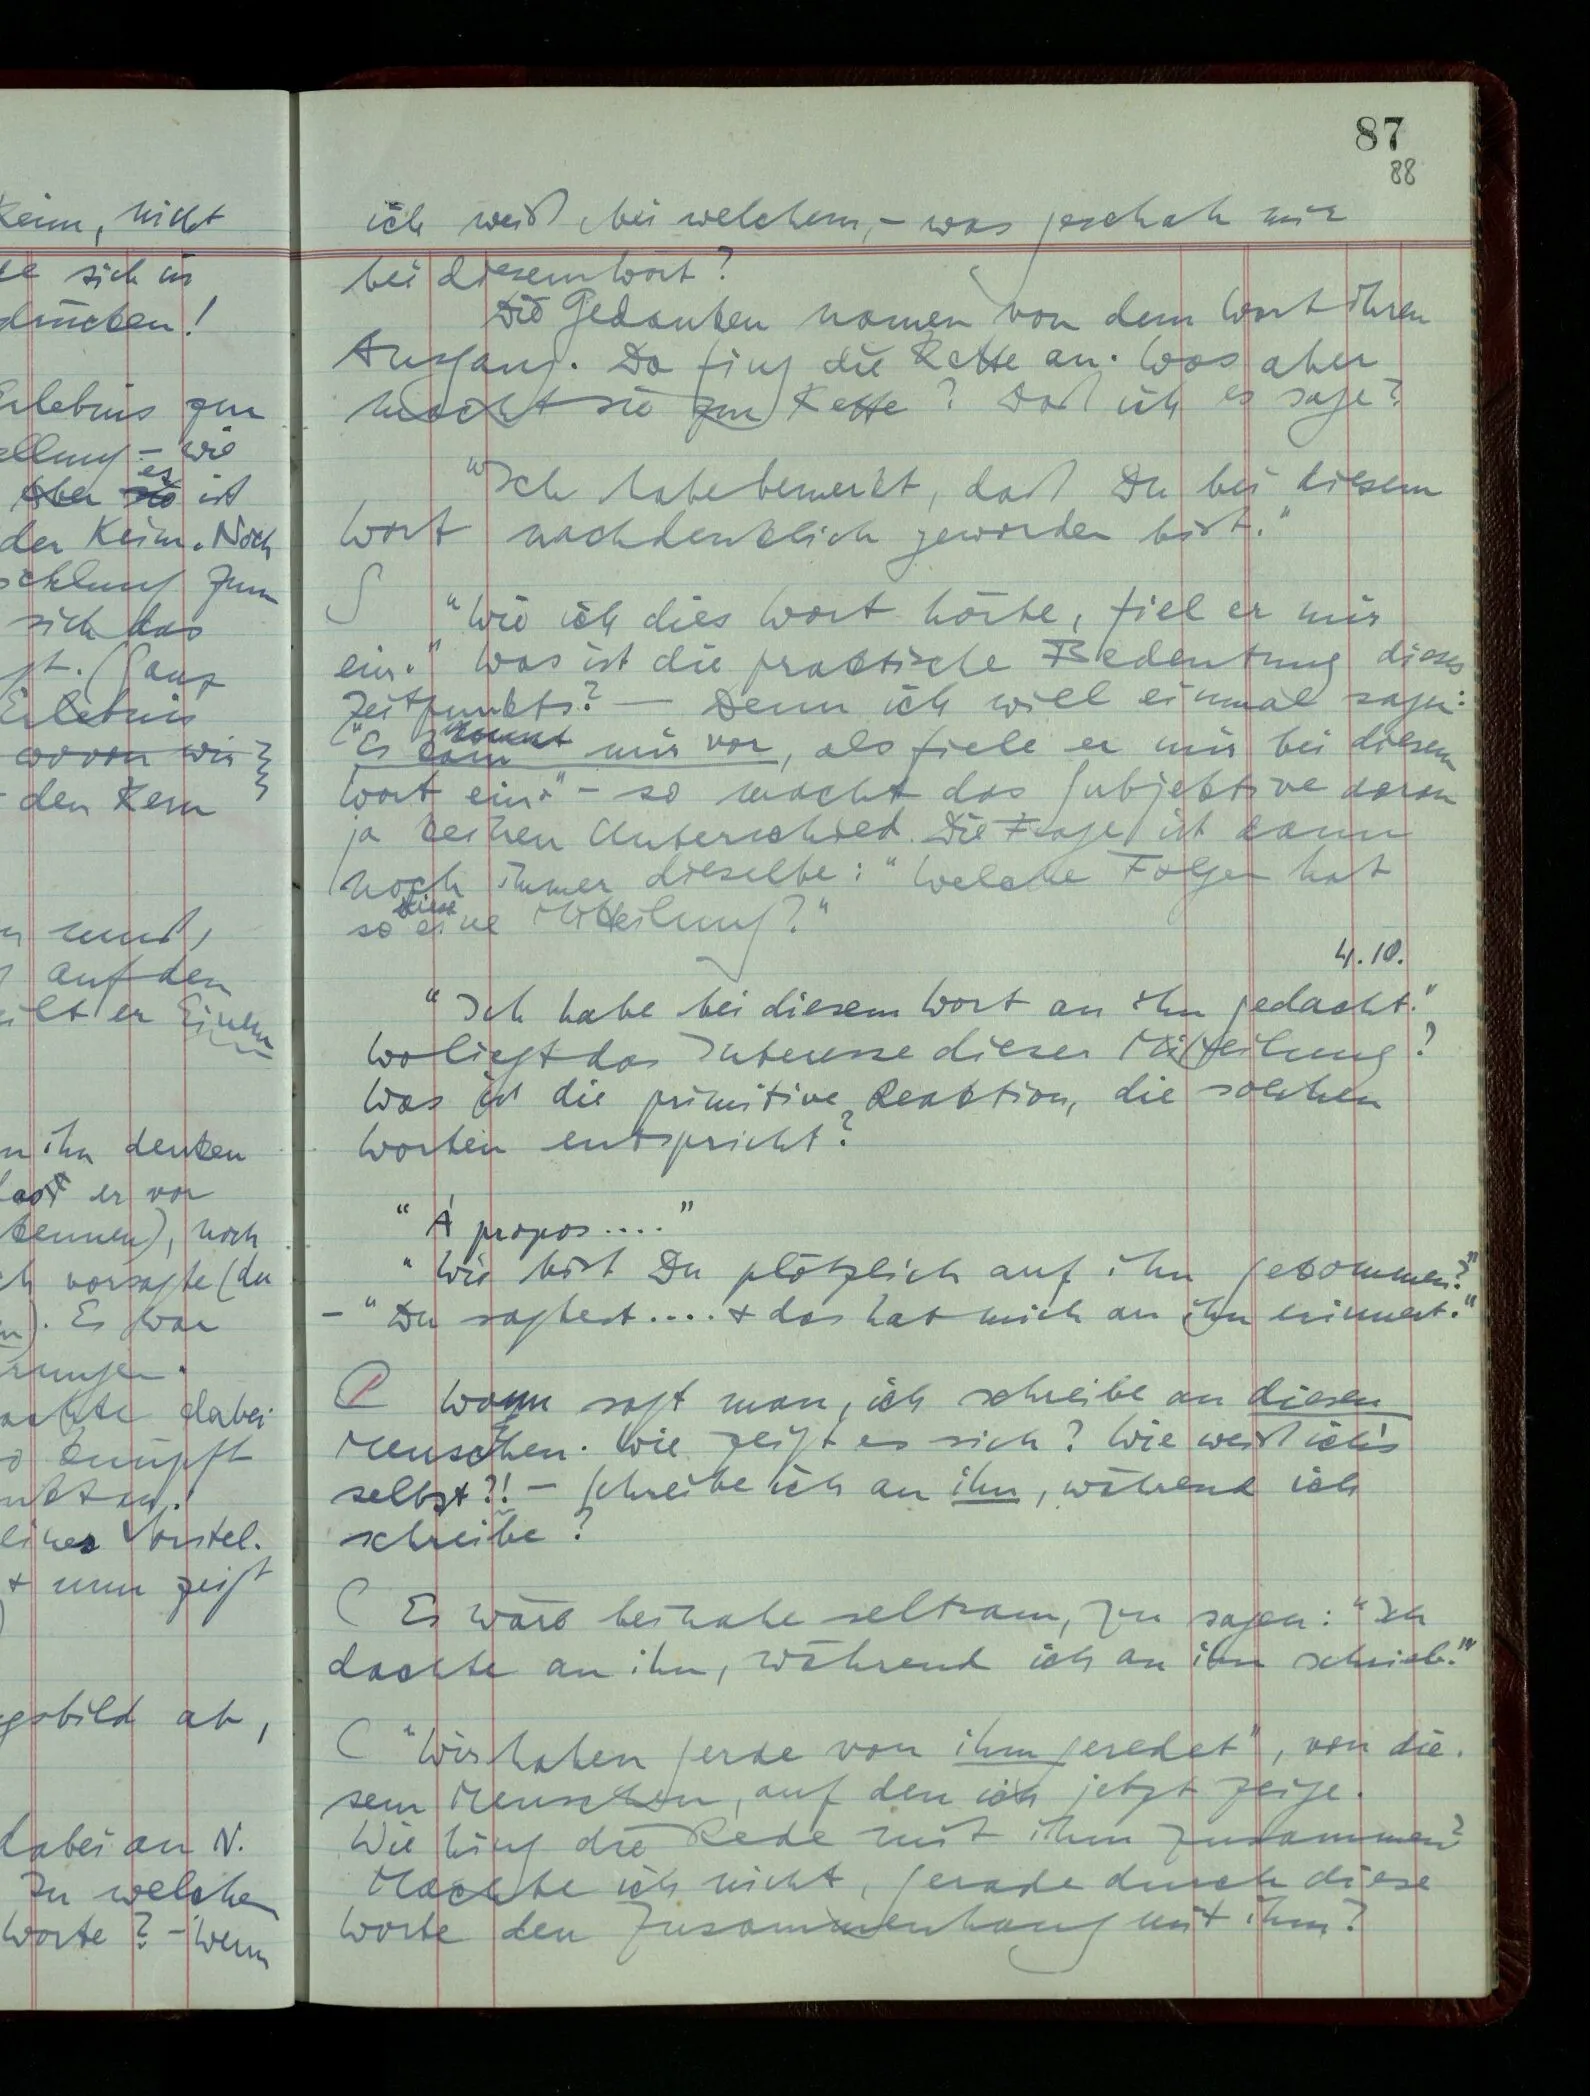 87
88
ich weiß bei welchem, – was geschah mir
bei diesem Wort?
Die Gedanken namen von dem Wort ihren
Ausgang. Da fing die Kette an. Was aber
macht sie zur Kette? Daß ich es sage?
"Ich habe bemerkt, daß Du bei diesem
Wort nachdenklich geworden bist."
S "Wie ich dies Wort hörte, fiel er mir
ein." Was ist die praktische Bedeutung dieses
Zeitpunkts? – Denn ich will einmal sagen:
"Es kam kommt mir vor, als fiele er mir bei diesem
Wort ein." – so macht das Subjektive daran
ja keinen Unterschied. Die Frage ist dann
noch immer dieselbe: "Welche Folgen hat
so eine diese Mitteilung?"
4.10.
"Ich habe bei diesem Wort an ihn gedacht."
Wo liegt das Interesse dieser Mitteilung?
Was ist die primitive Reaktion, die solchen
Worten entspricht?
"À propos...."
"Wie bist Du plötzlich auf ihn gekommen?"
– "Du sagtest .... & das hat mich an ihn erinnert."
Wann sagt man, ich schreibe an diesen
Menschen. Wie zeigt es sich? Wie weiß ich's
selbst?! – Schreibe ich an ihn, während ich
schreibe?
( Es wäre beinahe seltsam, zu sagen: "Ich
dachte an ihn, während ich an ihn schrieb."
( "Wir haben gerde von ihm geredet", von die-
sem Menschen, auf den ich jetzt zeige.
Wie hing die Rede mit ihm zusammen?
Machte ich nicht, gerade durch diese
Worte den Zusammenhang mit ihm?
Keim, nicht
sich in
drücken!
Erlebnis zur
ellung – wie
Aber sie es ist
der Keim. Noch
icklung zum
sich das
Ganz
Erlebnis
wovon wir
den Kern
auf den
eilt er Einem
ihn denken
er vor
kennen), noch
vorsagte (du
Es war
erungen.
achte dabei
knüpft
Vorstel-
& nun zeigt
gsbild ab,
dabei an N.
In welchen
Worte? – Wenn